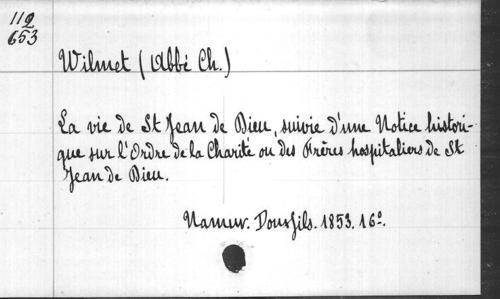 112
653
Wilmet (Abbé Ch.)
La vie de St Jean de Dieu, suivie d'une Notice histori-
que sur l'Ordre de la Charité ou des Frères hospitaliers de St
Jean de Dieu.
Namur. Douxfils. 1853. 16º.